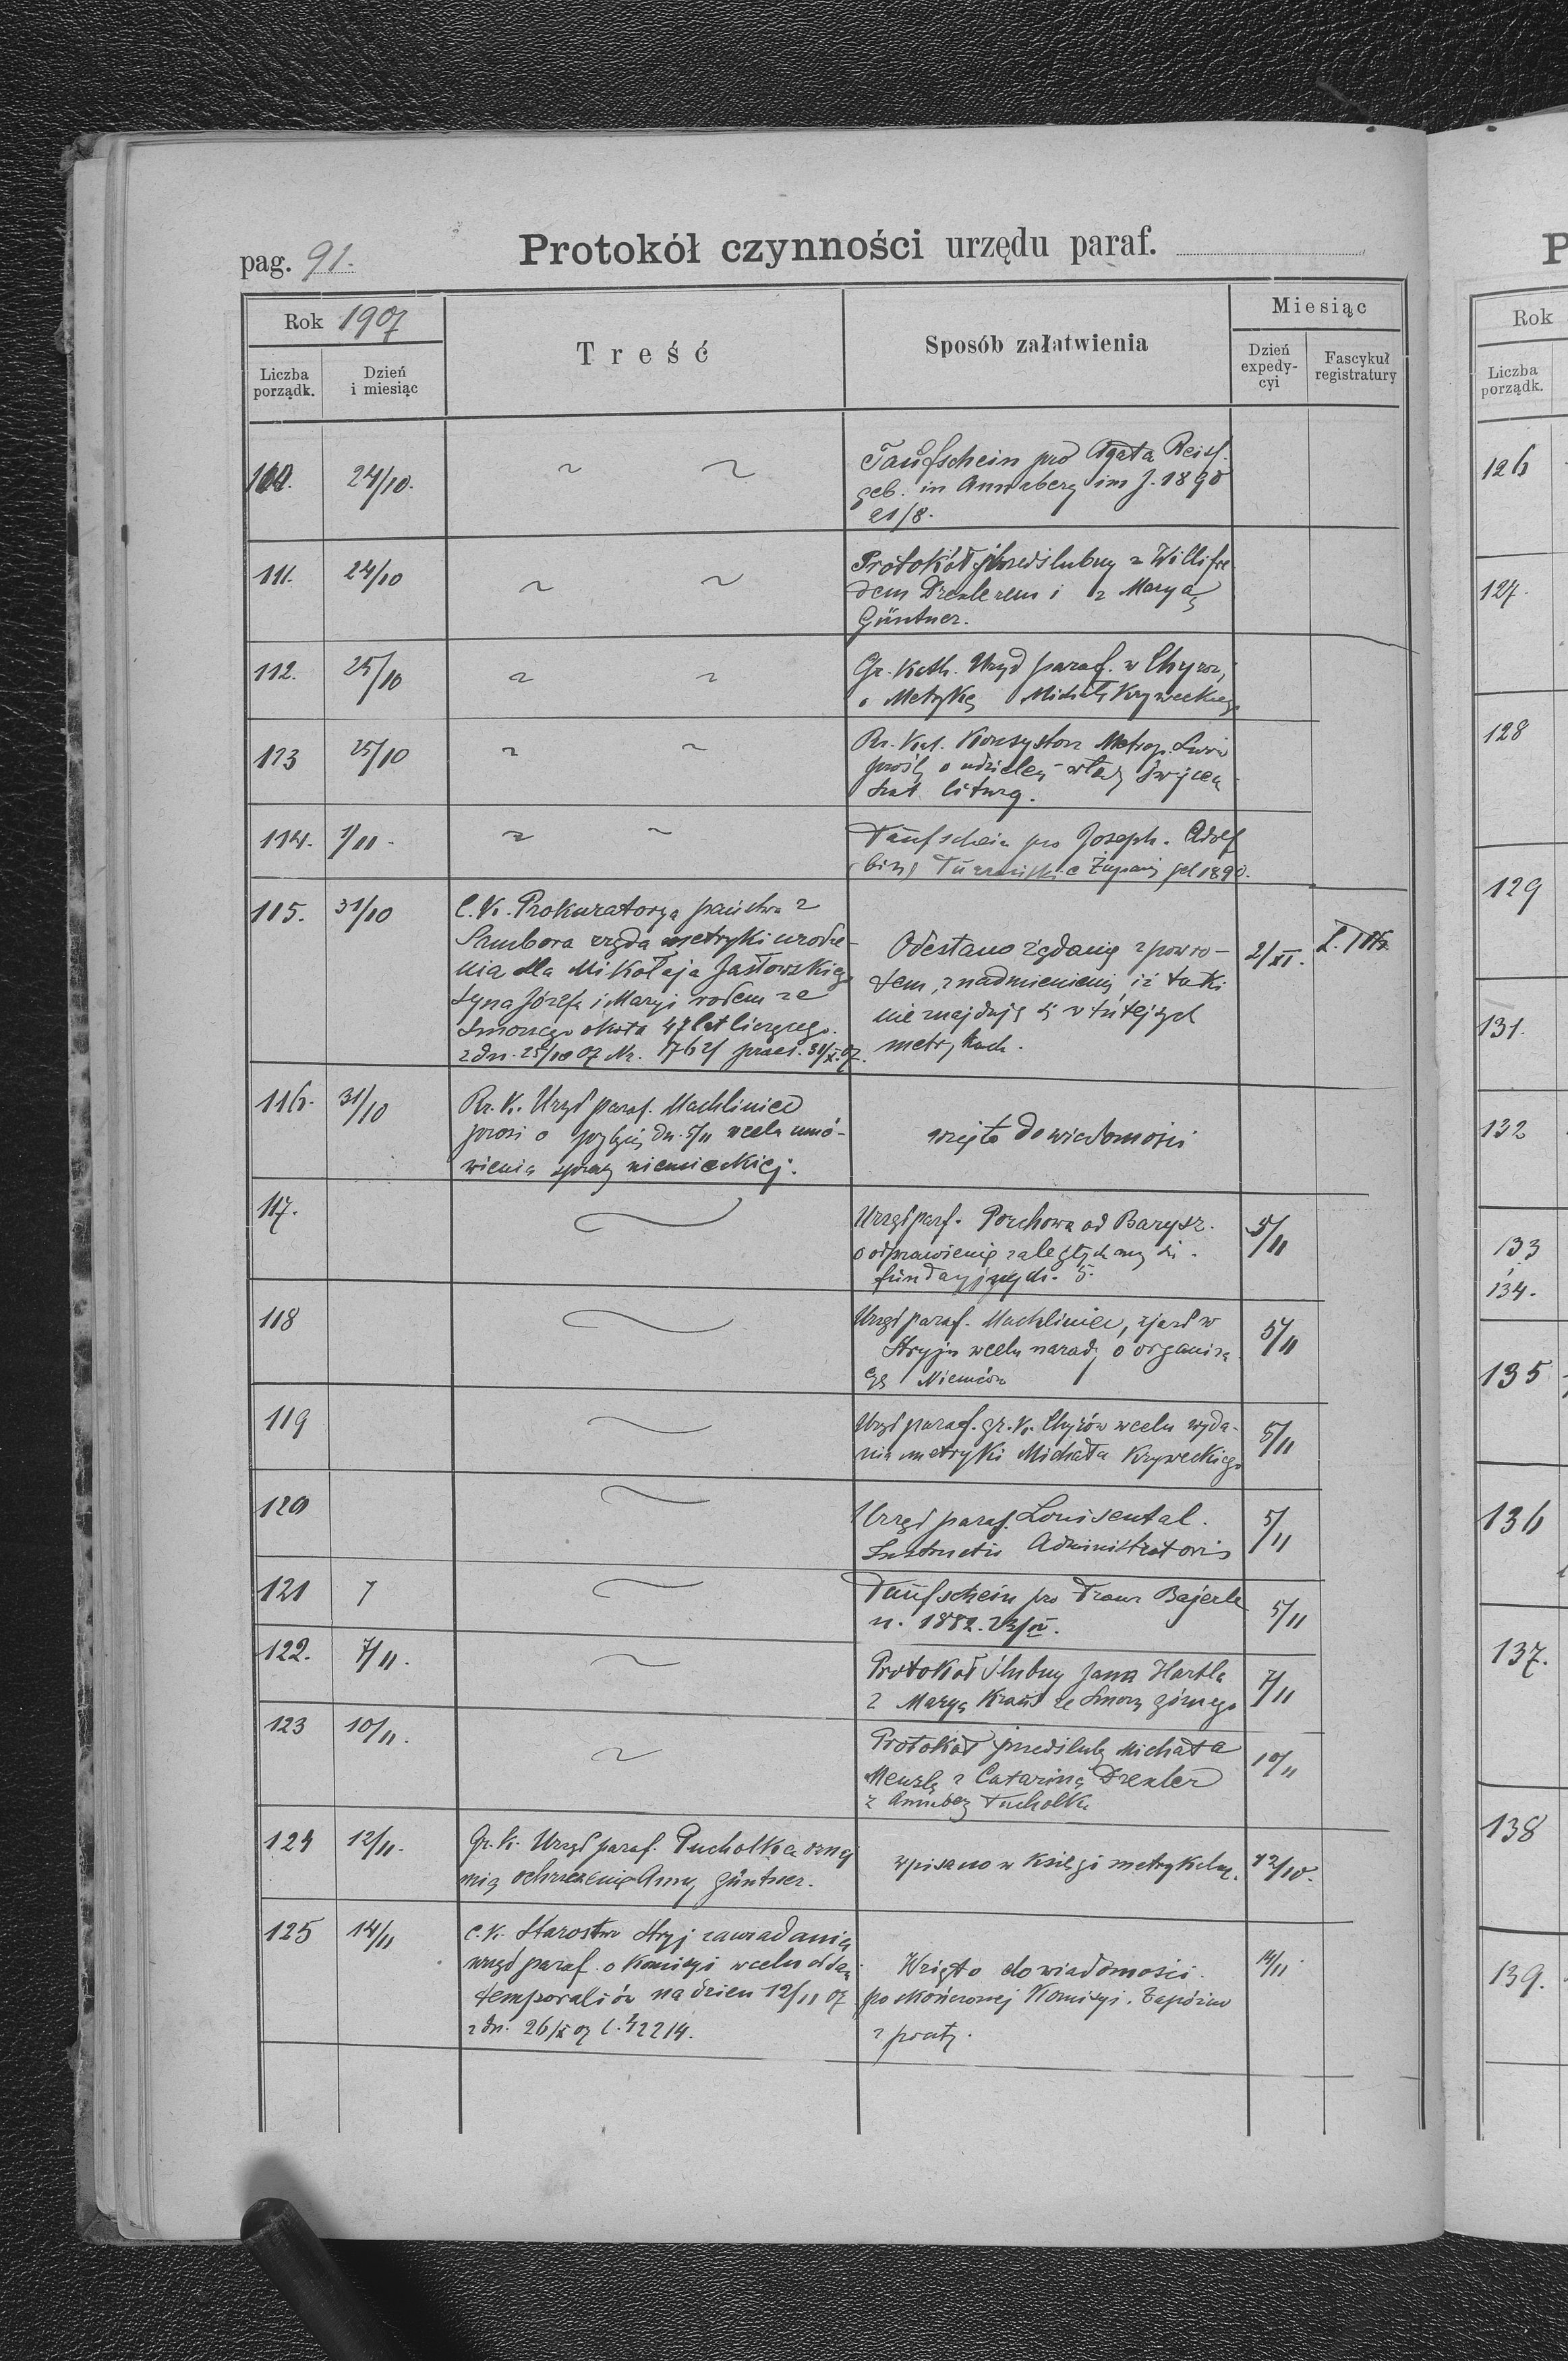 pag. 91.
Protokół czynności urzędu paraf.
Rok 1907
Treść
Sposób załatwienia
Miesiąc
Liczba porządk.
Dzień i miesiąc
Dzień expedycyi
Fascykuł registratury
24/10.
Taufschein pro Agata Reisl.
geb. in Annaberg im J. 1890
21/8.
111.
24/10
Protokół przedślubny z Willifre
dem Drexlerem i z Maryą
Güntner.
112.
25/10
Gr. Kath. Urząd paraf. w Chyrow,
o Metrykę Michała Kryweckiego
113
25/10
Rz. Kat. Konsystorz Metrop. Lwów
prośb o udzieleń władzy święcen
szat liturg.
114.
1/11.
Taufschein pro Joseph. Adolf
(bin)
1890.
115.
31/10
C. K. Prokuratorya państwa z
Sambora żąda metryki urodze-
nia dla Mikołaja Jasłowskiego
syna Józefa i Maryi rodem ze
Smorzego około 47 lat liczącego.
z dn. 25/10 07 Nr. praes. 31/X.07.
Odesłano żądanie z powro-
tem, z nadmienieniem iż taki
nie znajduje się w tutejszych
metrykach.
2/XI.
116.
31/10
Rz. K. Urząd paraf. Machliniec
prosi o dn. 5/11 w celu umó-
wienia sprawy niemieckiej.
wzięto do wiadomości
117.
Urząd parf. Porchowa ad Barysz.
o odprawienie zaległych mszy św.
fundacyjnych. 5.
5/11
118
Urząd paraf. Machliniec, zjazd w
Stryju w celu narady o organiza
cyę Niemców
5/11
119
Urząd paraf. gr. k. Chyrów w celu wyda-
nia metryki Michała Kryweckiego
5/11
120
Urząd paraf. Louisental.
Administratoris
5/11
121
Taufschein pro Franz Bajerle
n. 1882.
5/11
122.
7/11.
Protokół ślubny Jana Hartla
z Maryą Kraus ze Smorz górnego
7/11
123
10/11.
Protokół przedślubny Michała
z Catariną Drexler
z
10/11
124
12/11.
Gr. k. Urząd paraf. Tucholka oznaj
mia ochrzczenie Anny Güntner.
wpisano w księgi metrykalne.
12/10.
125
14/11
C. k. Starostwo Stryj zawiadamia
urząd paraf. o Komisyi w celu oddan
temporaliów na dzien 12/11 07
z dn. 26/X 07 l. 42214.
Wzięto do wiadomości.
po skończonej Komisyi. Zapóźno
z poczty.
14/11
P
Rok
Liczba porządk.
126
127.
128
129
131.
132
133
134.
135
136
137.
138
139.